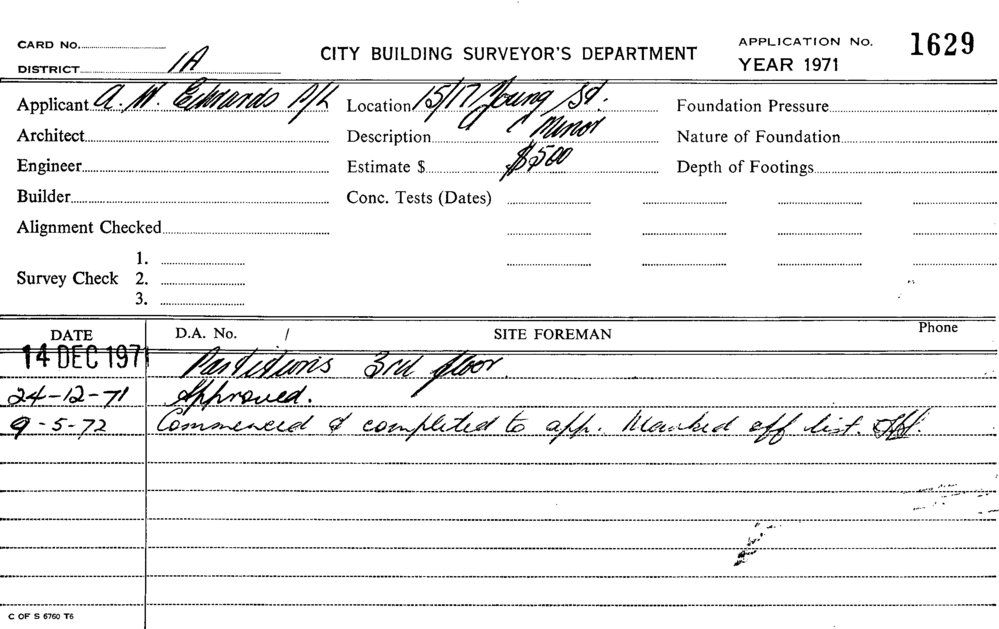 CARD No.
CITY BUILDING SURVEYOR'S DEPARTMENT
APPLICATION No. 1629
DISTRICT 1A
YEAR 1971
Applicant A. W. Edwards P/L Location 15/17 Young St. Foundation Pressure
Architect Description Minor Nature of Foundation
Engineer Estimate $ $500 Depth of Footings
Builder Conc. Tests (Dates)
Alignment Checked
1.
Survey Check 2.
3.
DATE D.A. No. / SITE FOREMAN Phone
14 DEC 1971 Partitions 3rd floor.
24-12-71 Approved.
9-5-72 Commenced & completed to app. Marked off list.
C OF S 6760 T6